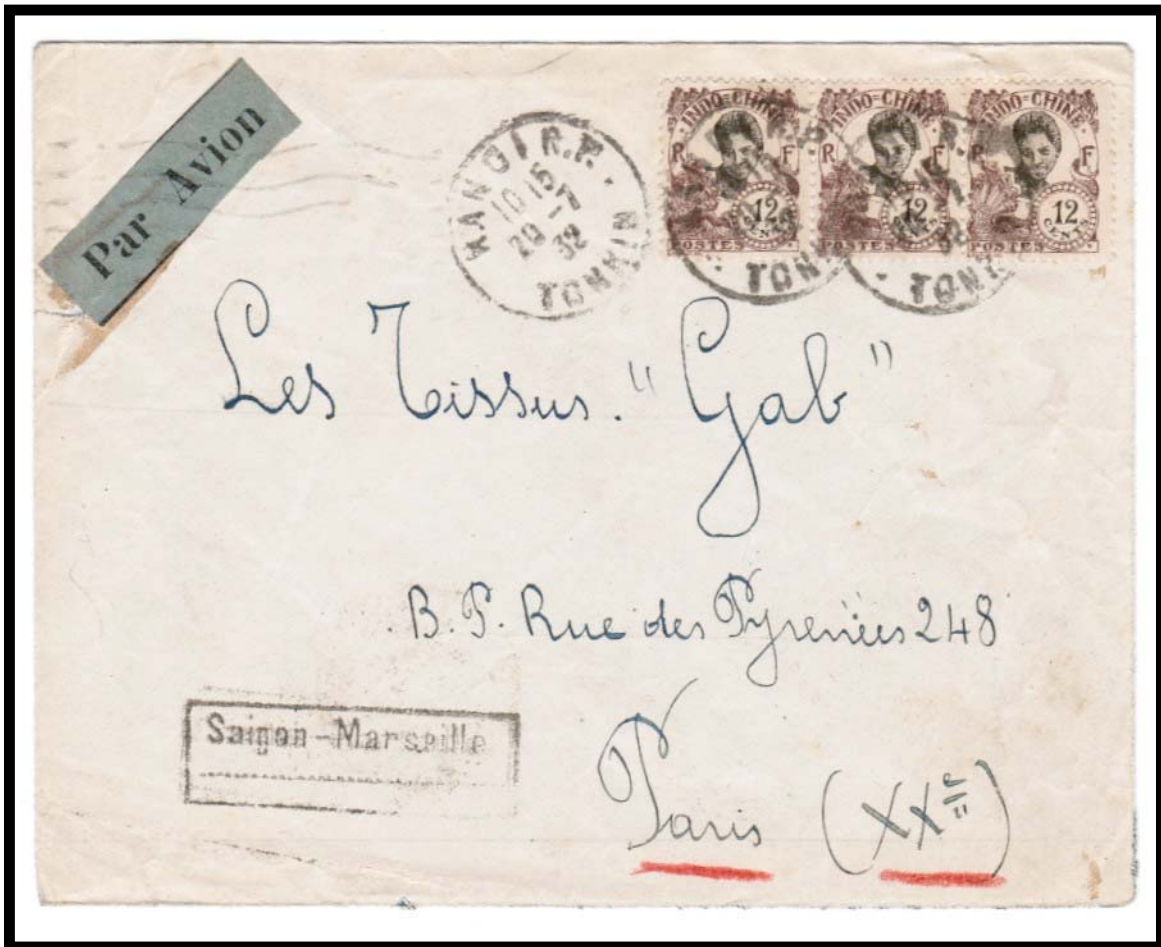 Par Avion
HANOI R.P.
10 15
20 -1
32
TONKIN
INDO=CHINE
R F
12
CENTS
POSTES
INDO=CHINE
R F
12
CENTS
POSTES
INDO=CHINE
R F
12
CENTS
POSTES
TONKIN
32
TONKIN
Les Tissus. "Gab"
B. P. Rue des Pyrenées 248
Saigon-Marseille
Paris (XXe)